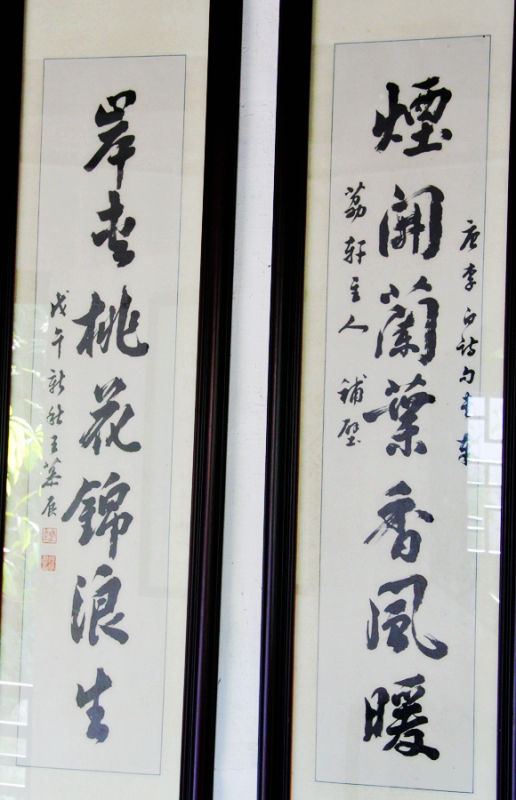 唐李白詩句書奉
煙開蘭葉香風暖
荔軒主人 補壁
岸夾桃花錦浪生
戊午新秋王